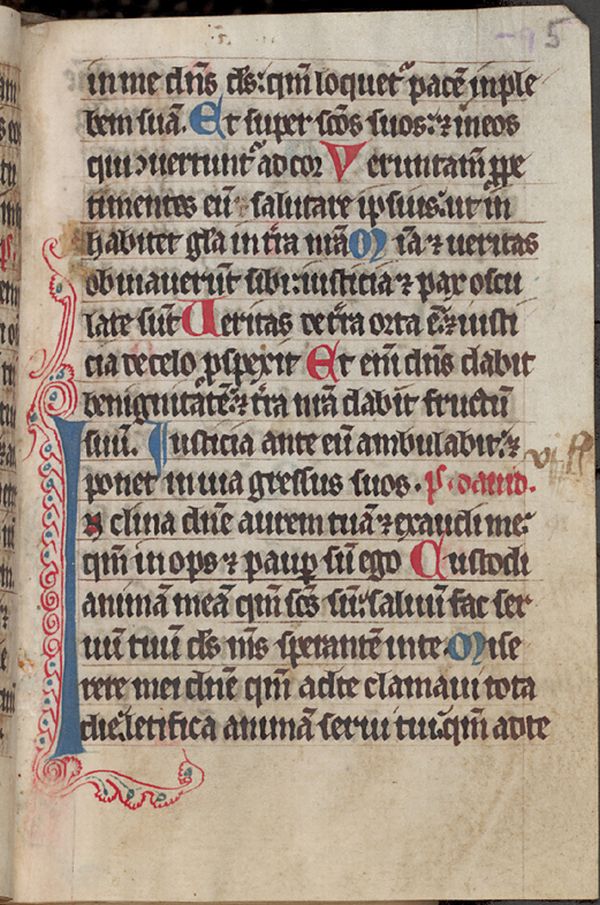 5
in me dn̄s ds̄: qm̄ loquetᷣ pacē in ple
bem suā. Et super sc̄os suos: ⁊ in eos
qui ↄuertuntᷣ ad cor Veruntam̄ ꝓpe
timentes eū salutare ipsius: ut in
habitet gl̄a in tr̄a nr̄a Mia ⁊ ueritas
obuiauerūt sibi: iusticia ⁊ pax oscu
late sūt Ueritas de tr̄a orta ē: ⁊ iusti
cia de celo ꝓspexit Et eni͞m dn̄s dabit
benignitatē: ⁊ tr̄a nr̄a dabit fructū
suū. Iusticia ante eū ambulabit: ⁊
ponet in uia gressus suos. p̄. dauid.
Inclina dn̄e aurem tuā ⁊ exaudi me:
qm̄ inops ⁊ paup̄ sū ego Custodi
animā meā qm̄ sc̄s sū: saluū fac ser
uū tuū ds̄ m̄s sperantē in te. Mise
rere mei dn̄e qm̄ ad te clamaui tota
die: letifica animā serui tui: qm̄ ad te